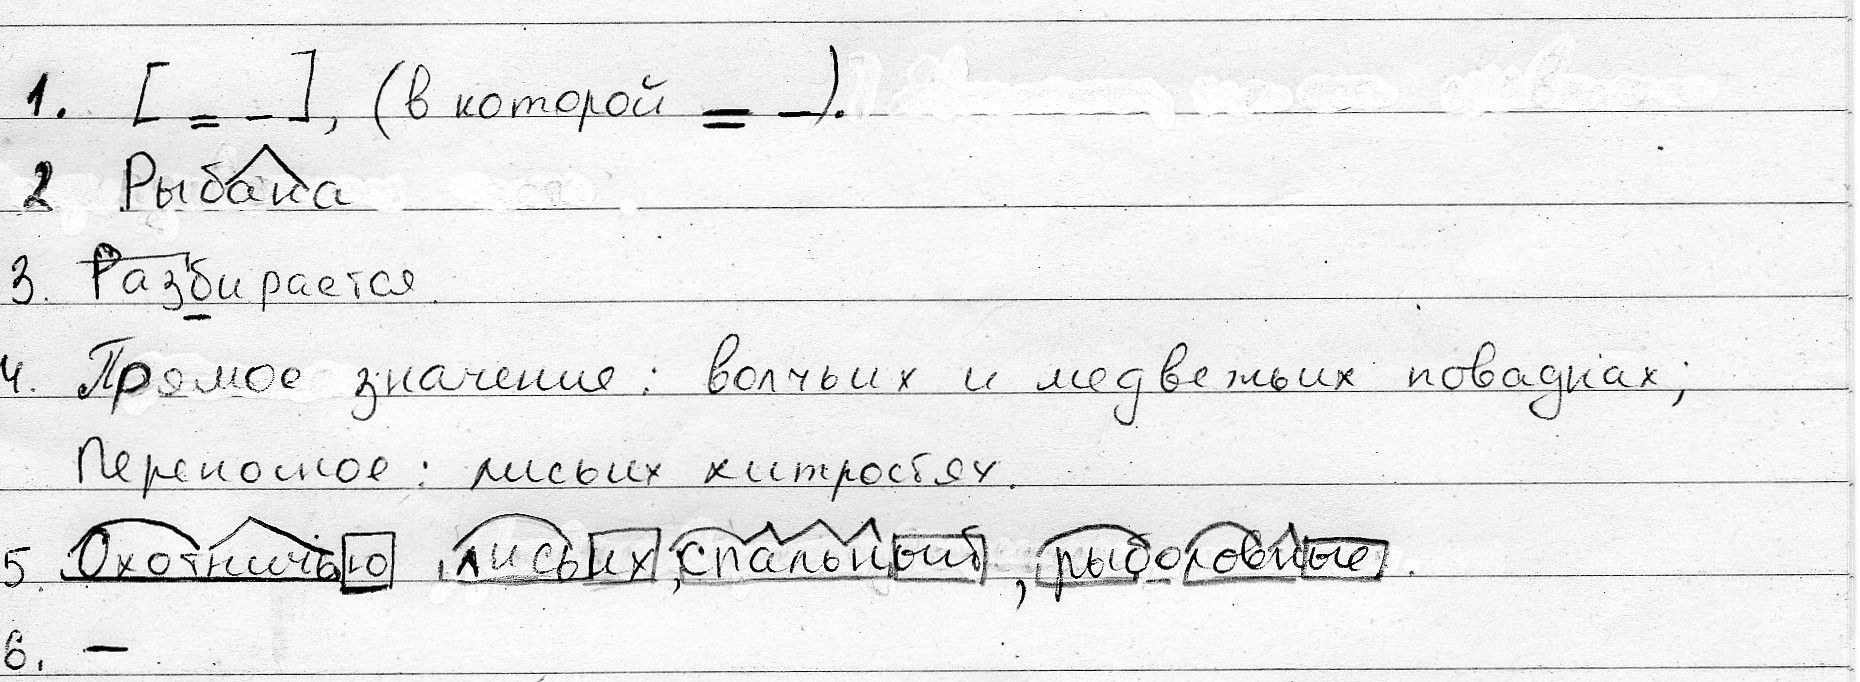 1. [ = – ], (в которой = –).
2 Рыбака
3. Разбирается.
4. Прямое значение: волчьих и медвежьих повадках;
Переносное: лисьих хитростях.
5. Охотничью, лисьих, спальный, рыболовные.
6. –